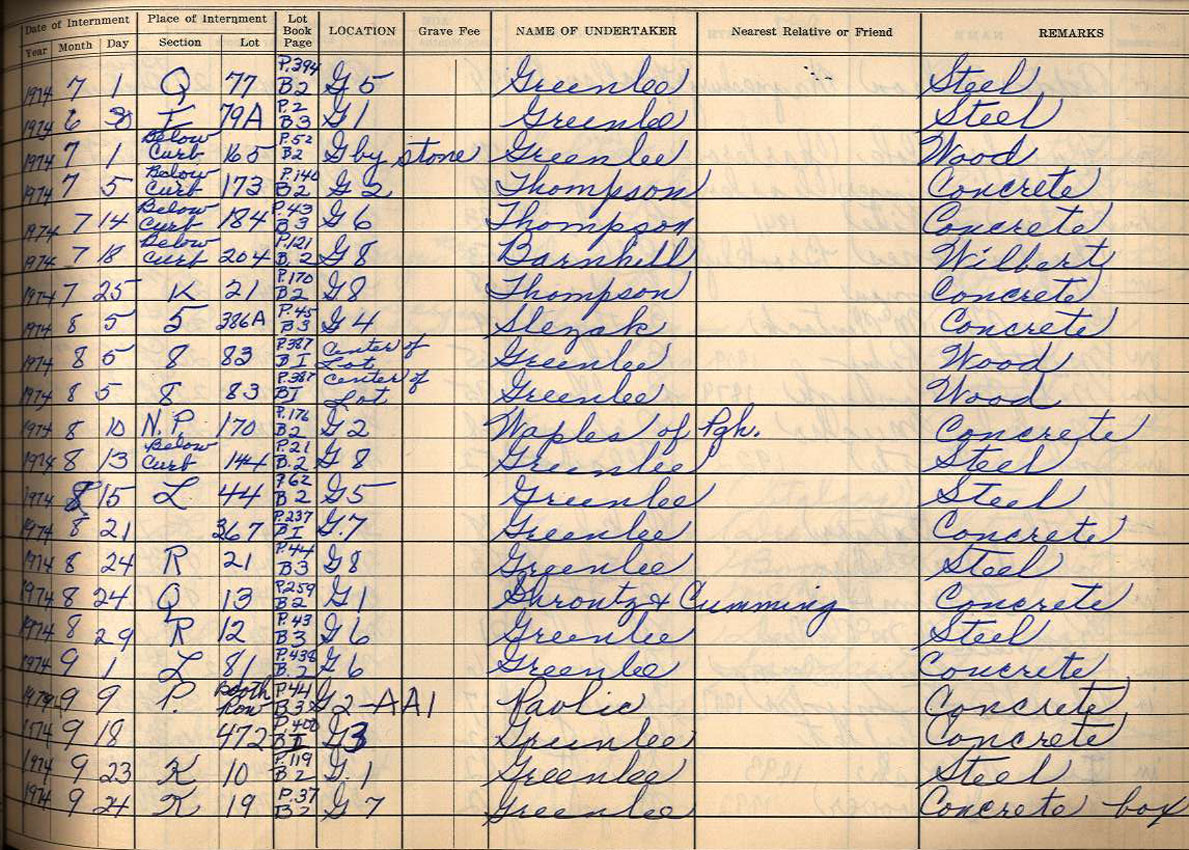 Date of Internment Place of Internment Lot Book Page LOCATION Grave Fee NAME OF UNDERTAKER Nearest Relative or Friend REMARKS
Year Month Day Section Lot
1974 7 1 Q 77 P.394 B2 G 5 Greenlee Steel
1974 6 30 79A P.2 B3 G 1 Greenlee Steel
1974 7 1 Below Curb 165 P.52 B2 G by stone Greenlee Wood
1974 7 5 Below Curb 173 P.140 B2 G 2 Thompson Concrete
1974 7 14 Below Curb 184 P.43 B3 G 6 Thompson Concrete
1974 7 18 Below Curb 204 P.121 B 2 G 8 Barnhill Wilbert
1974 7 25 K 21 P.170 B2 G 8 Thompson Concrete
1974 8 5 5 386A P.45 B 3 G 4 Slezak Concrete
1974 8 5 8 83 P.387 B I Center of Lot Greenlee Wood
1974 8 5 8 83 P.387 B I Center of Lot Greenlee Wood
1974 8 10 N.P. 170 P.176 B2 G 2 Waples of Pgh. Concrete
1974 8 13 Below Curb 144 P.21 B.2 G 8 Greenlee Steel
1974 8 15 L 44 P62 B 2 G 5 Greenlee Steel
1974 8 21 367 P.237 B I G.7 Greenlee Concrete
1974 8 24 R 21 P.44 B3 G 8 Greenlee Steel
1974 8 24 Q 13 P259 B2 G 1 Shrontz & Cumming Concrete
1974 8 29 R 12 P.43 B3 G 6 Greenlee Steel
1974 9 1 L 81 P.438 B.2 G 6 Greenlee Concrete
1974 9 9 P. Booth Row P.44 B 3 G 2-AA1 Pavlic Concrete
1974 9 18 472 P.400 B I G3 Greenlee Concrete
1974 9 23 K 10 P.119 B 2 G.1 Greenlee Steel
1974 9 24 K 19 P.37 B 2 G 7 Greenlee Concrete box